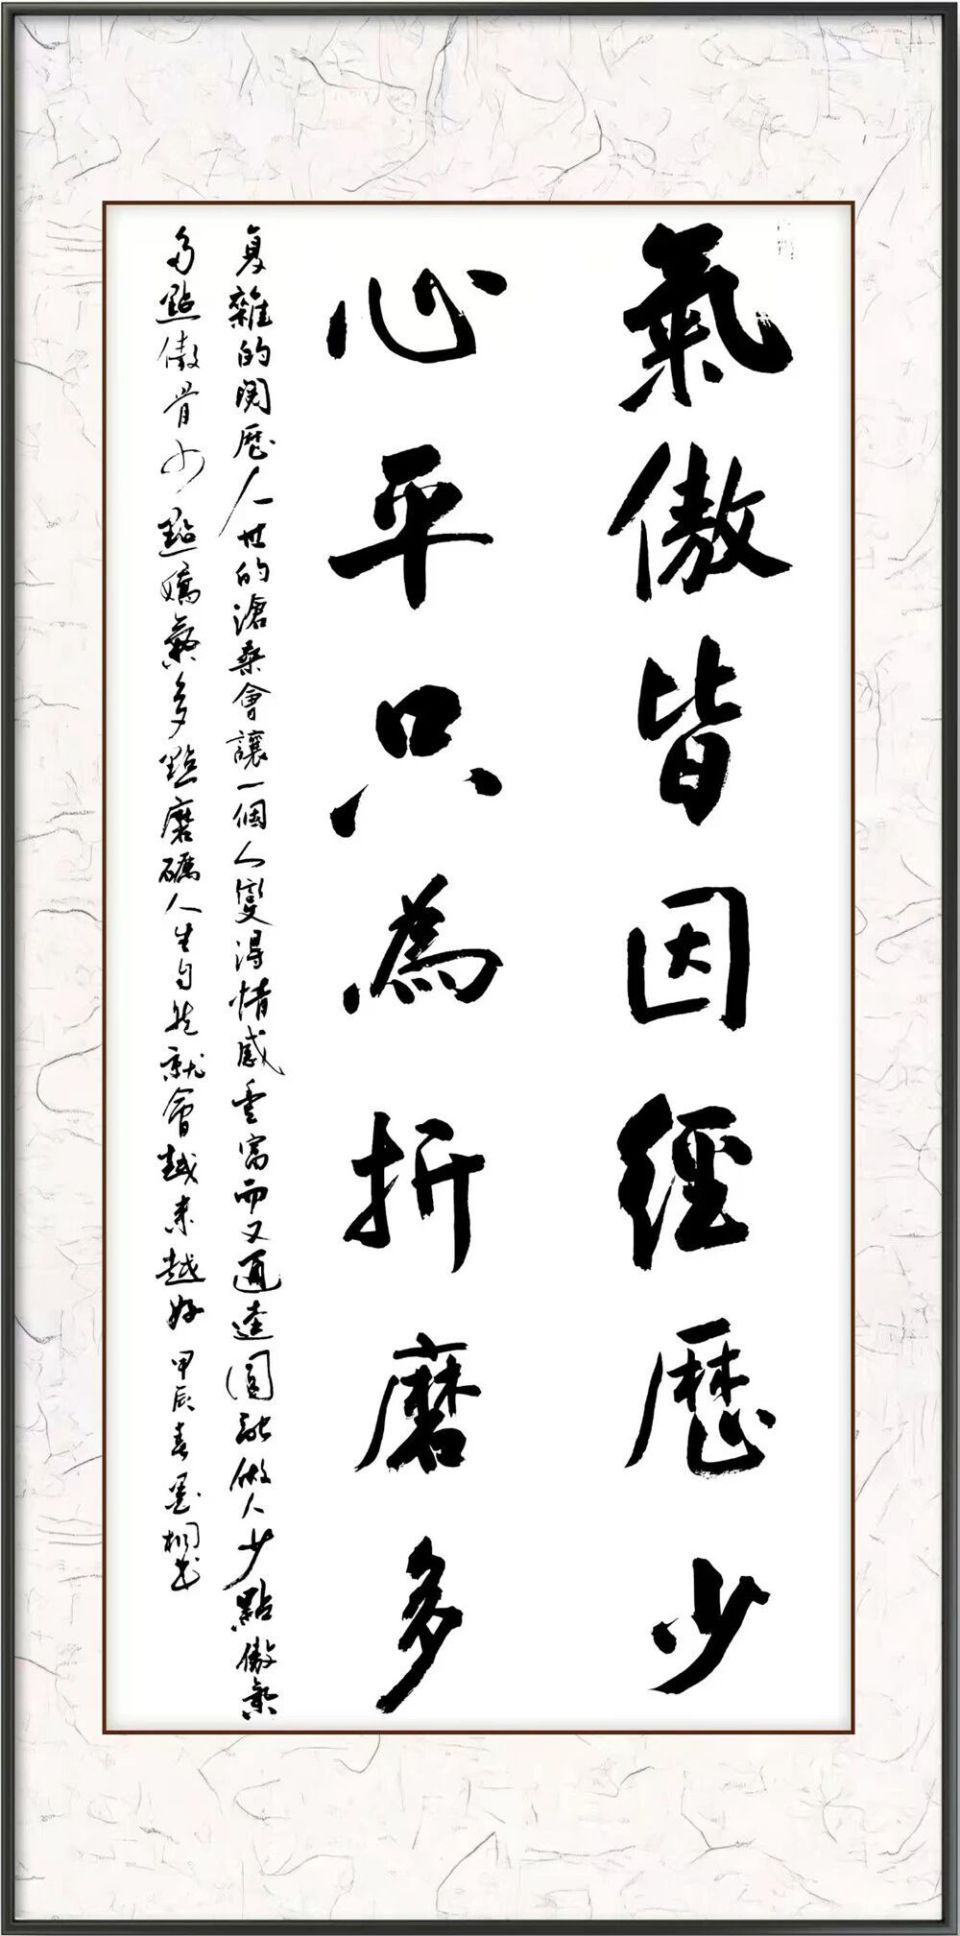 氣傲皆因經歷少
心平只為折磨多
复雜的閱歷人世的滄桑會讓一個人變得情感豐富而又通達圓融做人少點傲氣
多點傲骨少點嬌氣多點磨礪人生自然就會越來越好甲辰春墨桐書